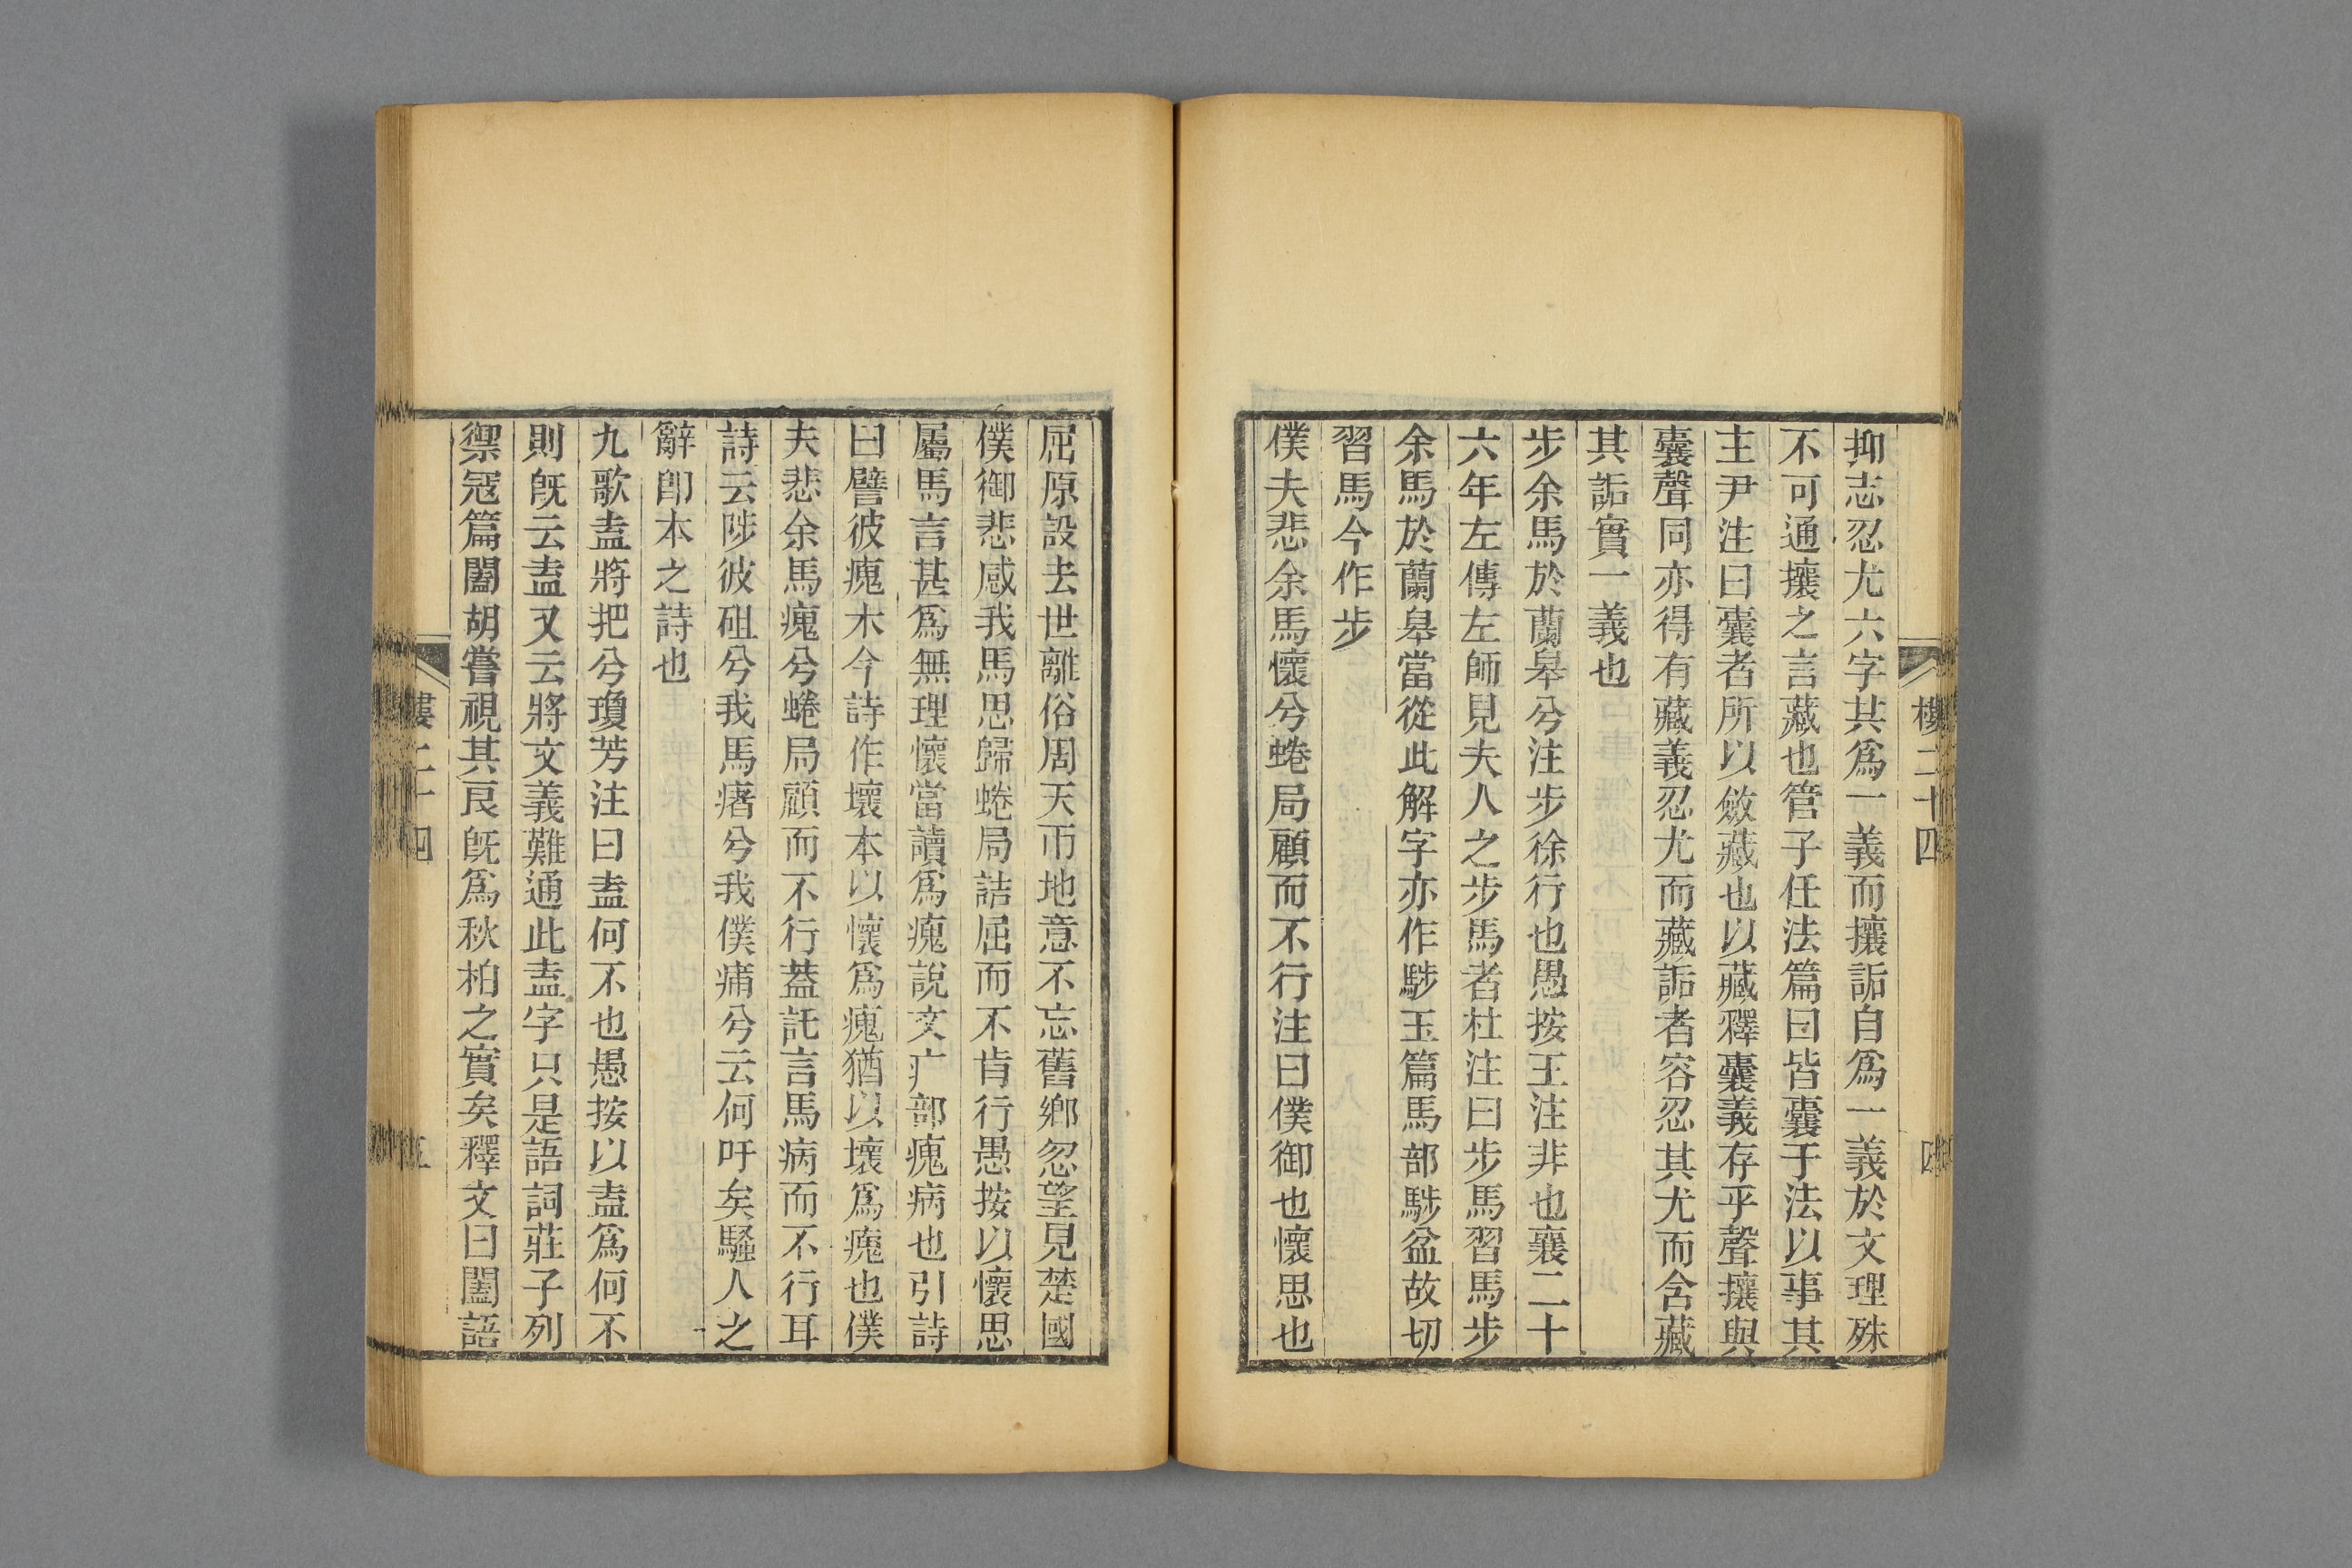 抑志忍尤六字其爲一義而攘詬自爲一義於文理殊
不可通攘之言藏也管子任法篇曰皆囊于法以事其
主尹注曰囊者所以斂藏也以藏釋囊義存乎聲攘與
囊聲同亦得有藏義忍尤而藏詬者容忍其尤而含藏
其詬實一義也
步余馬於蘭皋兮注步徐行也愚按王注非也襄二十
六年左傳左師見夫人之步馬者杜注曰步馬習馬步
余馬於蘭皋當從此解字亦作駯玉篇馬部駯盆故切
習馬今作步
僕夫悲余馬懷兮蜷局顧而不行注曰僕御也懷思也
屈原設去世離俗周天帀地意不忘舊鄉忽望見楚國
僕御悲感我馬思歸蜷局詰屈而不肯行愚按以懷思
屬馬言甚爲無理懷當讀爲瘣說文疒部瘣病也引詩
曰譬彼瘣木今詩作壞本以懷爲瘣猶以壞爲瘣也僕
夫悲余馬瘣兮蜷局顧而不行蓋託言馬病而不行耳
詩云陟彼砠兮我馬瘏兮我僕痡兮云何吁矣騷人之
辭卽本之詩也
九歌盍將把兮瓊芳注曰盍何不也愚按以盍爲何不
則旣云盍又云將文義難通此盍字只是語詞莊子列
禦寇篇闔胡嘗視其良旣爲秋柏之實矣釋文曰闔語
樓二十四
四
樓二十四
五